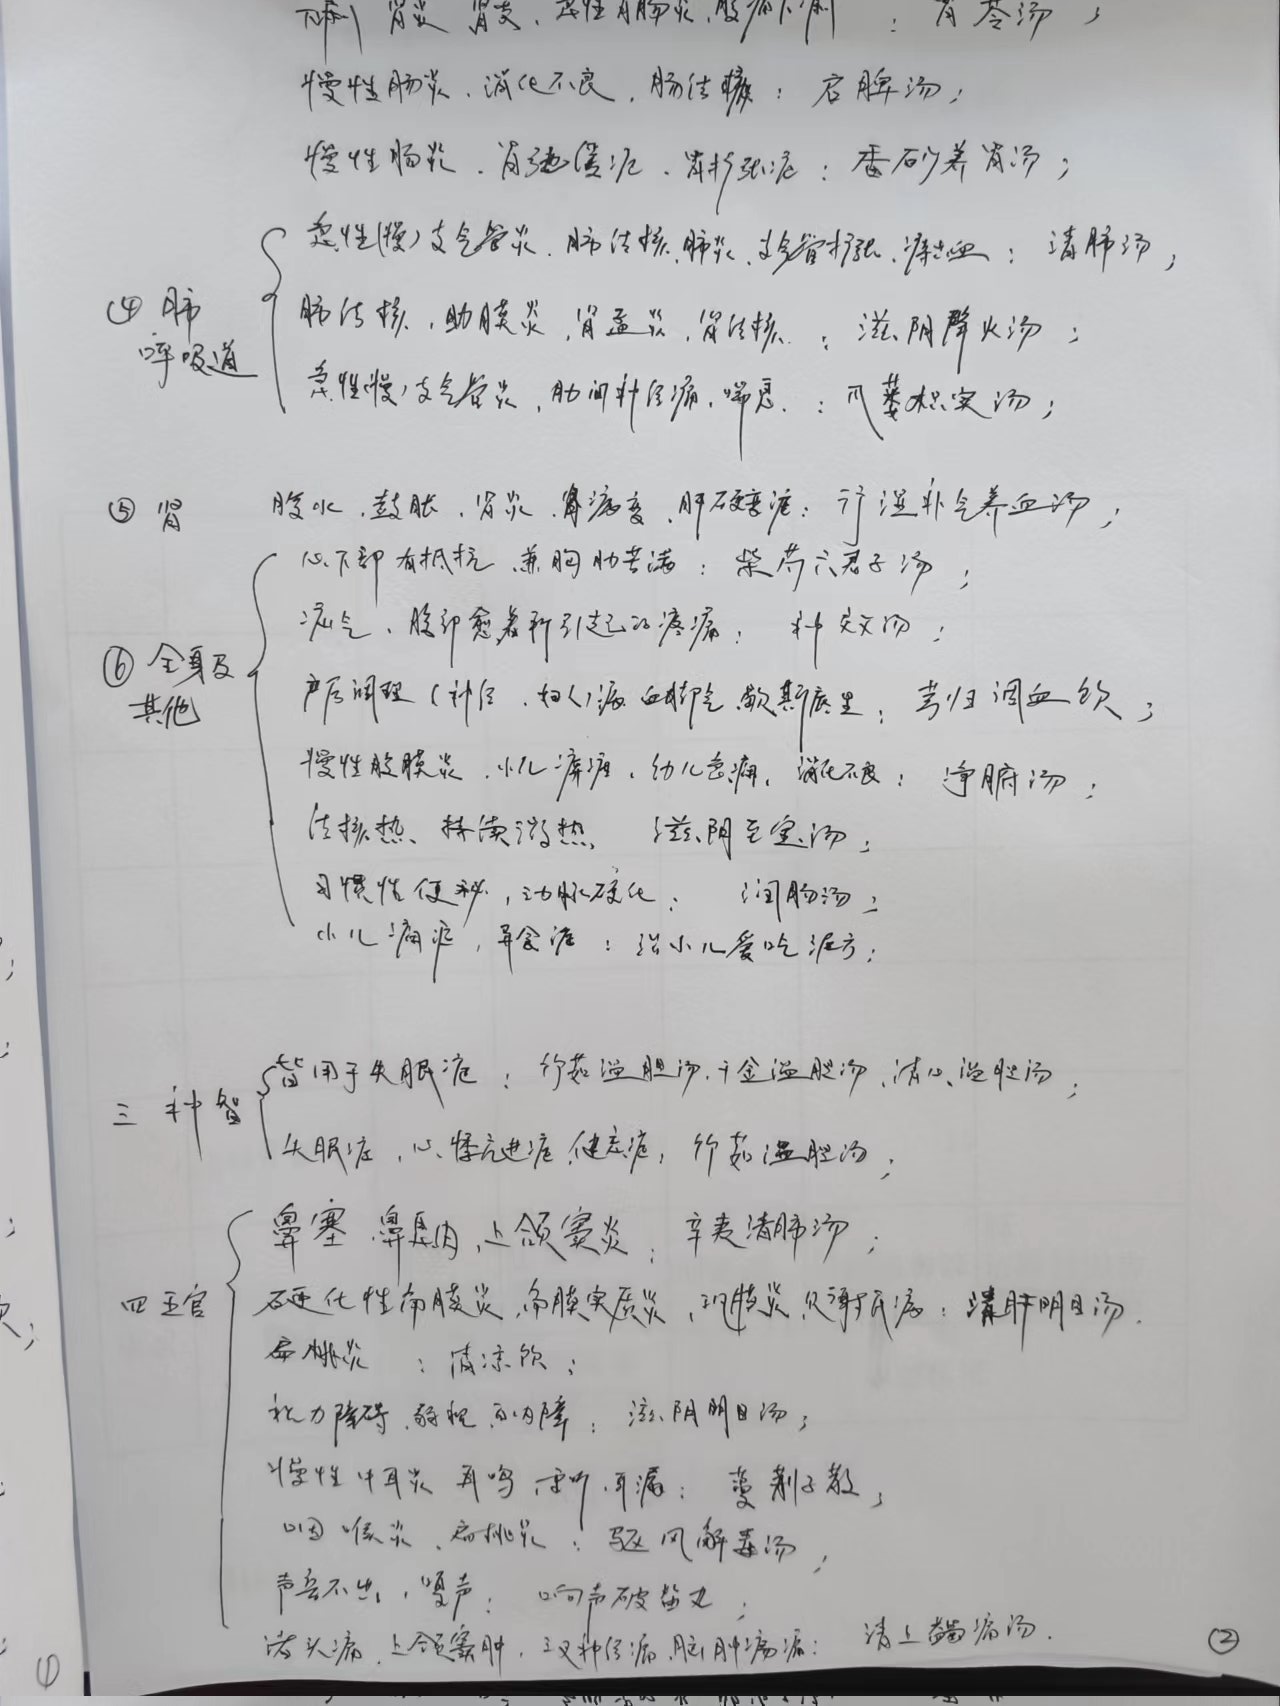 慢性肠炎、消化不良、肠结核：启脾汤；
慢性肠炎、胃弛缓症、胃扩张症：香砂养胃汤；
④肺 呼吸道
急性(慢)支气管炎、肺结核、肺炎、支气管扩张、痰血：清肺汤；
肺结核、肋膜炎、肾盂炎、肾结核：滋阴降火汤；
急性(慢)支气管炎、肋间神经痛、喘息：瓜蒌枳实汤；
⑤肾 腹水、鼓胀、肾炎、肾病变、肝硬变症：行湿补气养血汤；
⑥全身及其他
心下部有抵抗、兼胸肋苦满：柴芍六君子汤；
疝气、腹部愈着所引起的疼痛：神效汤；
产后调理(神经、妇人)病 血脚气 歇斯底里：芎归调血饮；
慢性腹膜炎、小儿癖症、幼儿、消化不良：净腑汤；
结核热、持续微热 滋阴至宝汤；
习惯性便秘，动脉硬化：润肠汤；
小儿症，异食症：小儿爱吃泥方；
三 神智
皆用于失眠症：竹茹温胆汤、千金温胆汤、清心温胆汤；
失眠症、心悸亢进症 健忘症：竹茹温胆汤；
四 五官
鼻塞 鼻息肉、上颌窦炎：辛夷清肺汤；
硬化性角膜炎、角膜实质炎、巩膜炎：清肝明目汤．
扁桃炎：清凉饮；
视力障碍、弱视 白内障：滋阴明目汤；
慢性中耳炎 耳鸣 重听、耳漏：蔓荆子散；
咽喉炎、扁桃炎：驱风解毒汤；
声音不出，嗄声：响声破笛丸；
头痛、上颌窦肿，三叉神经痛、脑肿疡痛：清上蠲痛汤．
①
②